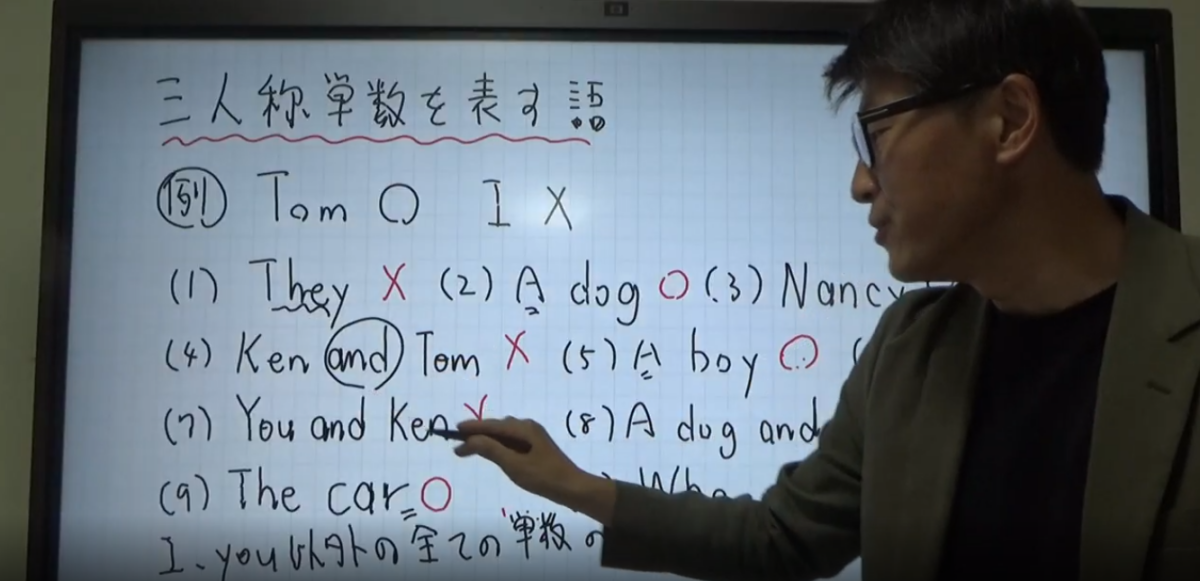 三人称単数を表す語
例 Tom ○ I X
(1) They X (2) A dog ○ (3) Nancy
(4) Ken and Tom X (5) A boy ○ (
(7) You and Ken X (8) A dog and
(9) The car ○
I、you以外の全ての"単数の